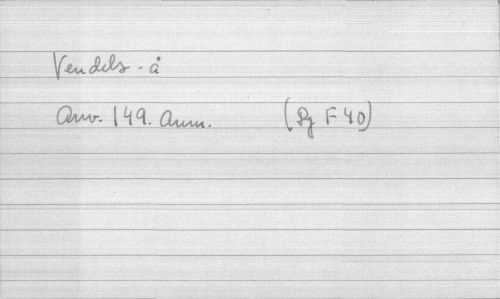 Vendels-å
Anv. 149. Anm. (Pg F 40)